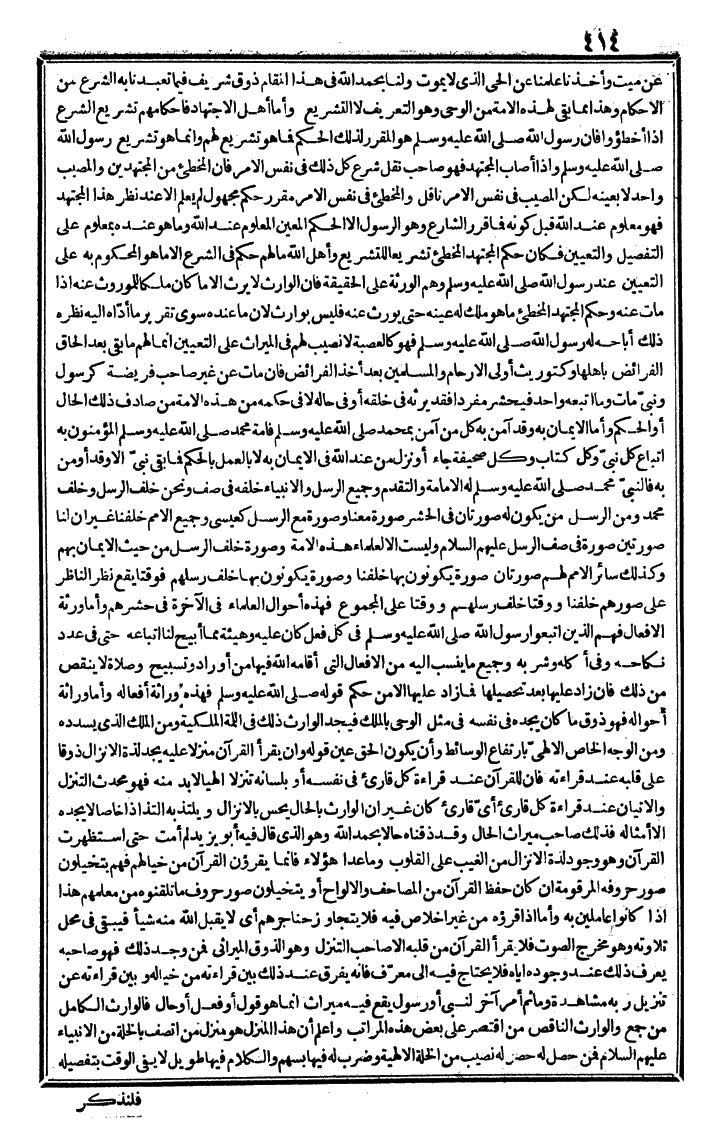 ٤١٤
عن ميت وأخذنا علمنا عن الحى الذى لايموت ولنا بحمد الله فى هذا المقام ذوق شريف فيما تعبدنا به الشرع من
الاحكام وهذا مما بقى لهذه الامة من الوحى وهو التعريف لا التشريع وأما أهل الاجتهاد فاحكامهم تشريع الشرع
اذا أخطؤا فان رسول الله صلى الله عليه وسلم هو المقرر لذلك الحكم فما هو تشريع لهم وانما هو تشريع رسول الله
صلى الله عليه وسلم واذا أصاب المجتهد فهو صاحب نقل شرع كل ذلك فى نفس الامر فان المخطئ من المجتهدين والمصيب
واحد لابعينه لكن المصيب فى نفس الامر ناقل والمخطئ فى نفس الامر مقرر حكم مجهول لم يعلم الا عند نظر هذا المجتهد
فهو معلوم عند الله قبل كونه فما قرر الشارع وهو الرسول الا الحكم المعين المعلوم عند الله وما هو عنده بمعلوم على
التفصيل والتعيين فكان حكم المجتهد المخطئ تشريعا للتشريع وأهل الله مالهم حكم فى الشرع الا ما هو المحكوم به على
التعيين عند رسول الله صلى الله عليه وسلم وهم الورثة على الحقيقة فان الوارث لايرث الا ما كان ملكا للموروث عنه اذا
مات عنه وحكم المجتهد المخطئ ما هو ملك له عينه حتى يورث عنه فليس بوارث لان ما عنده سوى تقرير ما أداه اليه نظره
ذلك أباحه له رسول الله صلى الله عليه وسلم فهو كالعصبة لانصيب لهم فى الميراث على التعيين انما لهم ما بقى بعد الحاق
الفرائض باهلها وكتوريث أولى الارحام والمسلمين بعد أخذ الفرائض فان مات عن غير صاحب فريضة كرسول
ونبىّ مات وما اتبعه واحد فيحشر مفردا فقد يرثه فى خلقه أو فى حاله لا فى حكمه من هذه الامة من صادف ذلك الحال
أو الحكم وأما الايمان به وقد آمن به كل من آمن بمحمد صلى الله عليه وسلم فامة محمد صلى الله عليه وسلم المؤمنون به
اتباع كل نبىّ وكل كتاب وكل صحيفة جاء أو نزل من عند الله فى الايمان به لا بالعمل بالحكم فما بقى نبىّ الا وقد أومن
به فالنبىّ محمد صلى الله عليه وسلم له الامامة والتقدم وجميع الرسل والانبياء خلفه فى صف ونحن خلف الرسل وخلف
محمد ومن الرسل من يكون له صورتان فى الحشر صورة معنا وصورة مع الرسل كعيسى وجميع الامم خلفنا غير ان لنا
صورتين صورة فى صف الرسل عليهم السلام وليست الا لعلماء هذه الامة وصورة خلف الرسل من حيث الايمان بهم
وكذلك سائر الامم لهم صورتان صورة يكونون بها خلفنا وصورة يكونون بها خلف رسلهم فوقتا يقع نظر الناظر
على صورهم خلفنا ووقتا خلف رسلهم ووقتا على المجموع فهذه أحوال العلماء فى الآخرة فى حشرهم وأما ورثة
الافعال فهم الذين اتبعوا رسول الله صلى الله عليه وسلم فى كل فعل كان عليه وهيئة مما أبيح لنا اتباعه حتى فى عدد
نكاحه وفى أكله وشربه وجميع ما ينسب اليه من الافعال التى أقامه الله فيها من أوراد وتسبيح وصلاة لاينقص
من ذلك فان زاد عليها بعد تحصيلها فما زاد عليها الا من حكم قوله صلى الله عليه وسلم فهذه وراثة أفعاله وأما وراثة
أحواله فهو ذوق ما كان يجده فى نفسه فى مثل الوحى بالملك فيجد الوارث ذلك فى اللمة الملكية ومن الملك الذى يسدده
ومن الوجه الخاص الالهىّ بارتفاع الوسائط وأن يكون الحق عين قوله وان يقرأ القرآن منزلا عليه يجد لذة الانزال ذوقا
على قلبه عند قراءته فان للقرآن عند قراءة كل قارئ فى نفسه أو بلسانه تنزلا الهيا لابد منه فهو محدث التنزل
والاتيان عند قراءة كل قارئ أىّ قارئ كان غير ان الوارث بالحال يحس بالانزال ويلتذ به التذاذا خاصا لايجده
الا أمثاله فذلك صاحب ميراث الحال وقد ذقناه حالا بحمد الله وهو الذى قال فيه أبو يزيد لم أمت حتى استظهرت
القرآن وهو وجود لذة الانزال من الغيب على القلوب وما عدا هؤلاء فانما يقرؤن القرآن من خيالهم فهم يتخيلون
صور حروفه المرقومة ان كان حفظ القرآن من المصاحف والالواح أو يتخيلون صور حروف ما تلقنوه من معلمهم هذا
اذا كانوا عاملين به وأما اذا قرؤه من غير اخلاص فيه فلايتجاوز حناجرهم أى لا يقبل الله منه شيأ فيبقى فى محل
تلاوته وهو مخرج الصوت فلا يقرأ القرآن من قلبه الا صاحب التنزل وهو الذوق الميراثى فمن وجد ذلك فهو صاحبه
يعرف ذلك عند وجوده اياه فلا يحتاج فيه الى معرّف فانه يفرق عند ذلك بين قراءته من خياله وبين قراءته عن
تنزيل ربه مشاهدة وما ثم أمر آخر لنبى أو رسول يقع فيه ميراث انما هو قول أو فعل أو حال فالوارث الكامل
من جمع والوارث الناقص من اقتصر على بعض هذه المراتب واعلم أن هذا المنزل هو منزل من اتصف بالخلة من الانبياء
عليهم السلام فمن حصل له حصل له نصيب من الخلة الالهية وضرب له فيها بسهم والكلام فيها طويل لايفى الوقت بتفصيله
فلنذكر